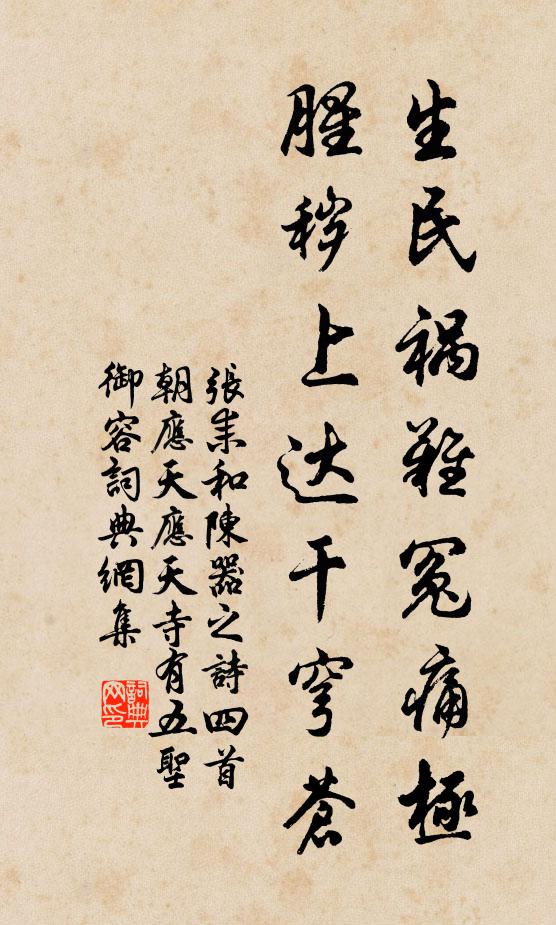 生民祸難冤痛極
腥秽上达干穹蒼
張耒和陳器之詩四首
朝應天應天寺有五聖
御容詞典網集
詞典网印